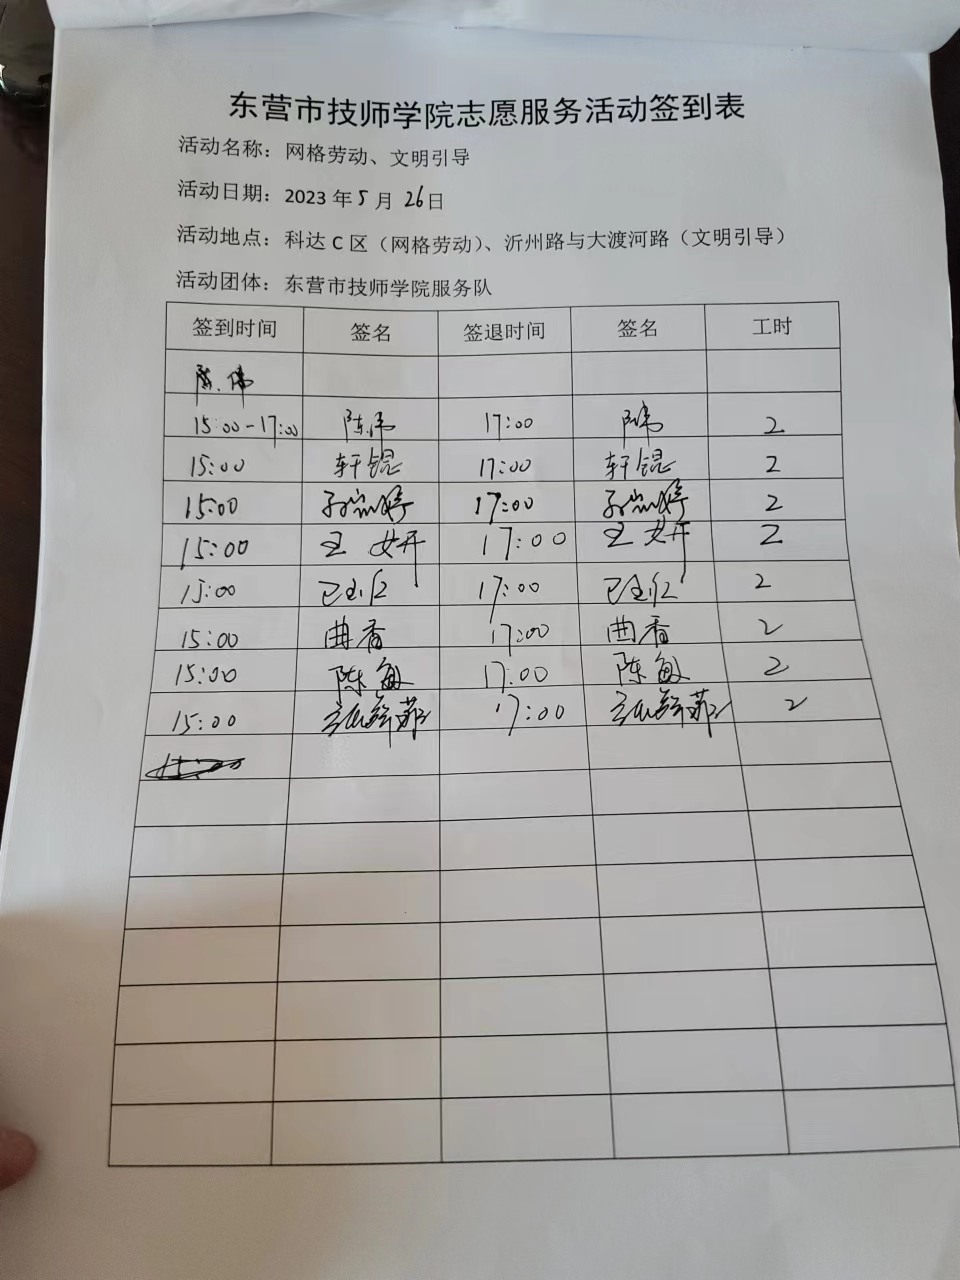 东营市技师学院志愿服务活动签到表
活动名称：网格劳动、文明引导
活动日期：2023 年 5 月 26 日
活动地点：科达 C 区（网格劳动）、沂州路与大渡河路（文明引导）
活动团体：东营市技师学院服务队
签到时间 签名 签退时间 签名 工时
陈伟
15:00-17:00 陈伟 17:00 陈伟 2
15:00 轩锟 17:00 轩锟 2
15:00 17:00 2
15:00 王妍 17:00 王妍 2
15:00 17:00 2
15:00 曲香 17:00 曲香 2
15:00 陈敏 17:00 陈敏 2
15:00 17:00 2